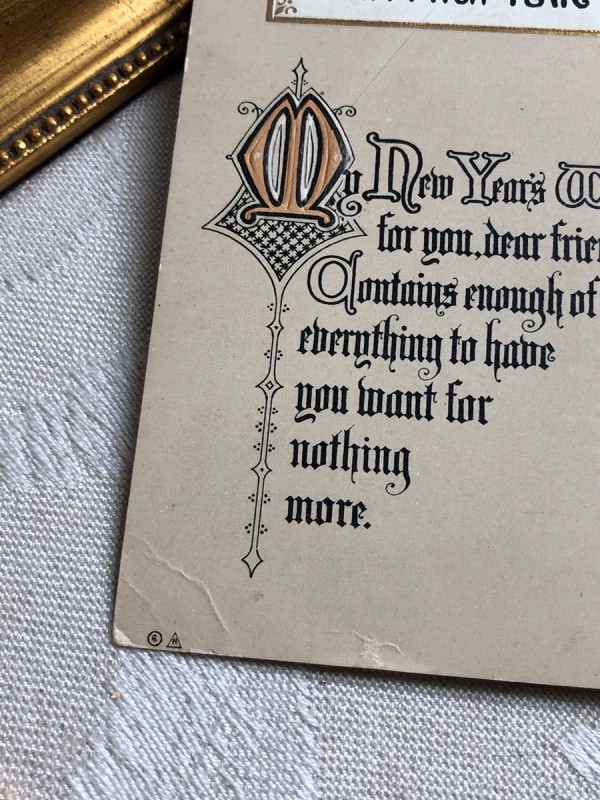 My New Year's
for you, dear
Contains enough of
everything to have
you want for
nothing
more.
© N